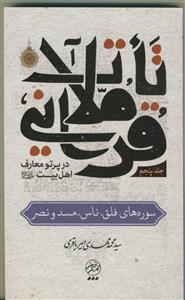 تأملات
قرآنی
جلد پنجم
در پرتو معارف
اهل بیت
سوره‌های فلق، ناس، مسد و نصر
سید محمدمهدی میرباقری